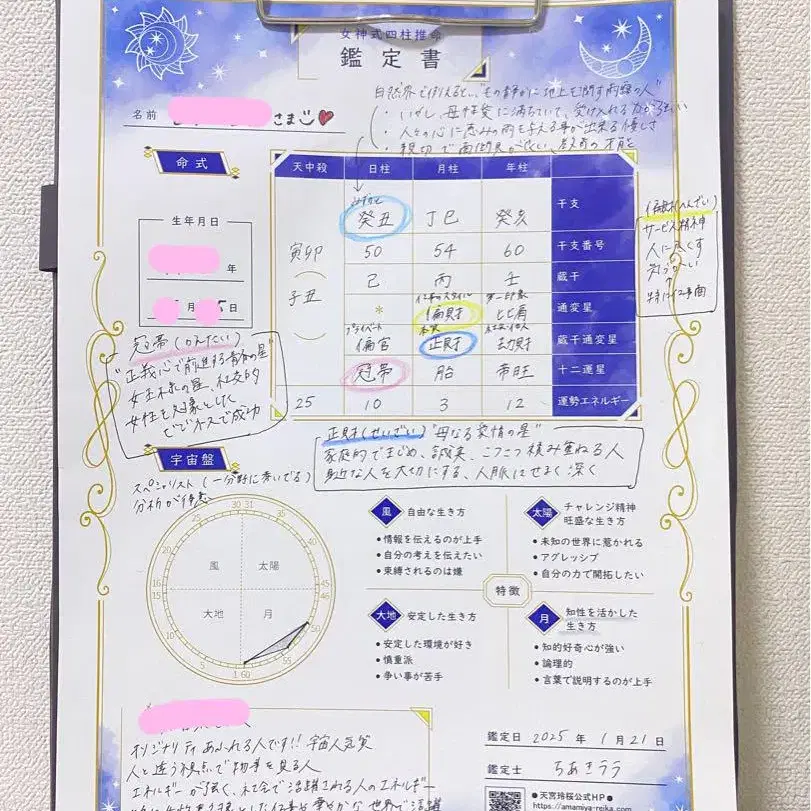 女神式四柱推命
鑑定書
名前
さま
自然界で例えると、"もの静かに地上を潤す雨露の人"
・いやし、母性愛に満ちていて、受け入れる力がある
・人々の心に恵みの雨を与える事が出来る優しさ
・親切で面倒見が良い、教育の才能
命式
生年月日
年
月 5日
天中殺 日柱 月柱 年柱
癸丑 丁巳 癸亥 干支
寅卯 50 54 60 干支番号
子丑 己 丙 壬 蔵干
仕事のスタイル 第一印象
* 偏財 比肩 通変星
プライベート 本質
偏官 正財 劫財 蔵干通変星
冠帯 胎 帝旺 十二運星
25 10 3 12 運勢エネルギー
偏財(へんざい)
サービス精神
人に尽くす
冠帯(かんたい)
"正義心で前進する青春の星"
社交的
女性を対象とした
ビジネスで成功
正財(せいざい) "母なる愛情の星"
家庭的でまじめ、誠実、コツコツ積み重ねる人
身近な人を大切にする、人脈はせまく深く
宇宙盤
スペシャリスト (一分野に秀いでる)
分析が得意
30 31
25
20
16
15
10
5
1 60
55
50
46
45
40
35
風
太陽
大地
月
風 自由な生き方
•情報を伝えるのが上手
•自分の考えを伝えたい
•束縛されるのは嫌
太陽 チャレンジ精神
旺盛な生き方
•未知の世界に惹かれる
•アグレッシブ
•自分の力で開拓したい
特徴
大地 安定した生き方
•安定した環境が好き
•慎重派
•争い事が苦手
月 知性を活かした
生き方
•知的好奇心が強い
•論理的
•言葉で説明するのが上手
オリジナリティあふれる人です!! 宇宙人気質
人と違う視点で物事を見る人
エネルギーが強く、社会で活躍される人のエネルギー
鑑定日 2025年 1月21日
鑑定士 ちあきララ
●天宮玲桜公式HP●
https://amamiya-reika.com